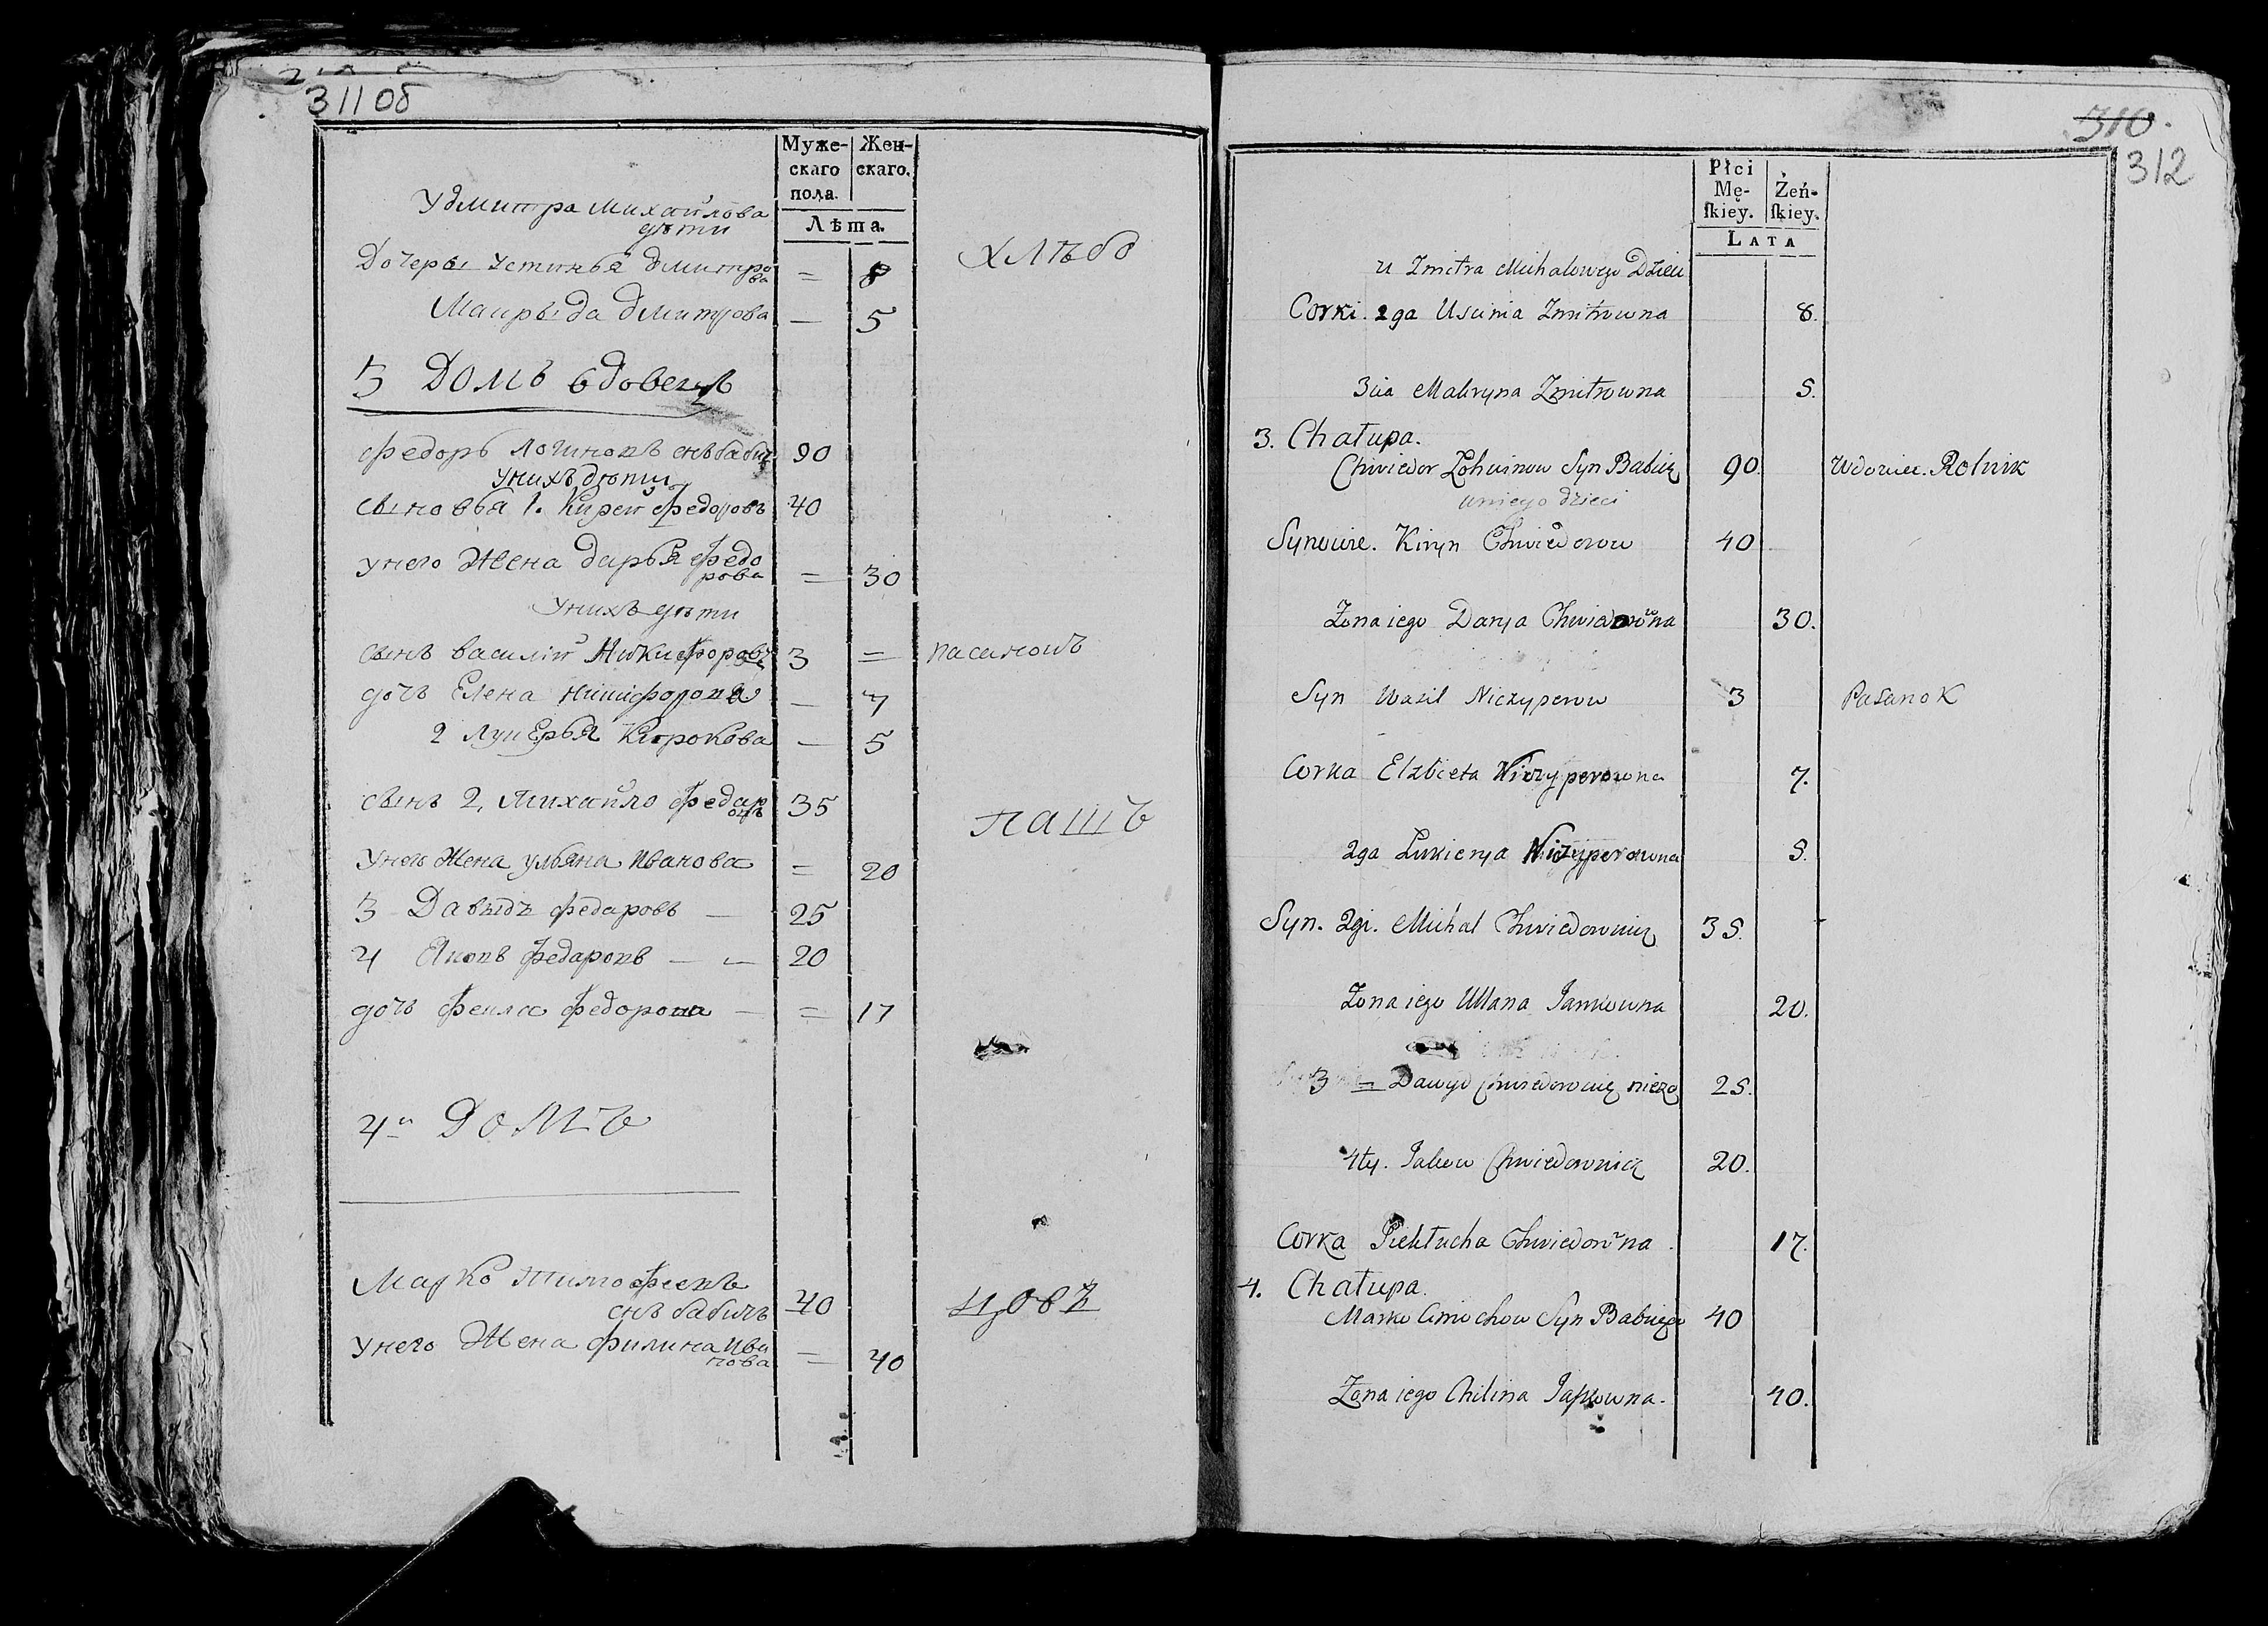 311 об
Муже-
скаго
пола.
Жен-
скаго.
Лѣта.
У дмитра михайлова
дѣти
дочеры устинья дмитро
ва = 8
Макрыда дмитрова — 5
хлѣбо
3 Домъ вдовецъ
федоръ логиновъ снъ бабич 90
у нихъ дѣти
сыновья 1. Кирей федоровъ 40
у него Жена дарья федо
рова = 30
у нихъ дѣти
сынъ василій Никифоровъ 3 = пасынокъ
дочъ Елена никифорова — 7
2 лукерья — 5
сынъ 2, михайло федар
овъ 35
пашъ
у него Жена ульяна иванова = 20
3 Давыдъ федаровъ — 25
4 Яковъ федаровъ — — 20
дочъ федорова — = 17
4й Домъ
Марко тимофеевъ
снъ бабичъ 40
цовъ
у него Жена филина ива
нова = 40
310.
312
Płci
Mę-
ſkiey.
Żeń-
ſkiey.
LATA
u Zmitra Michalowego Dzieci
Corki. 2ga Uscinia Zmitrowna 8.
3cia Makryna Zmitrowna 5.
3. Chałupa.
Chwiedor Łohwinow Syn Babicz 90 Wdowiec. Rolnik
u niego dzieci
Synowie. Kiryn Chwiedorow 40
Żona iego Darya Chwiedorowna 30.
Syn Wasil Niczyperow 3 Pasanok
Corka Elzbieta Niczyperowna 7.
2ga Łukierya Niczyperowna 5.
Syn. 2gi. Michał Chwiedorowicz 35.
Żona iego Ullana Jankowna 20.
3 = Dawyd Chwiedorowicz 25.
4ty. Jakow Chwiedorowicz 20.
Corka Piekłucha Chwiedorowna 17.
4. Chałupa.
Marko Cimochow Syn Babicza 40
Żona iego Chilina Jaskowna. 40.